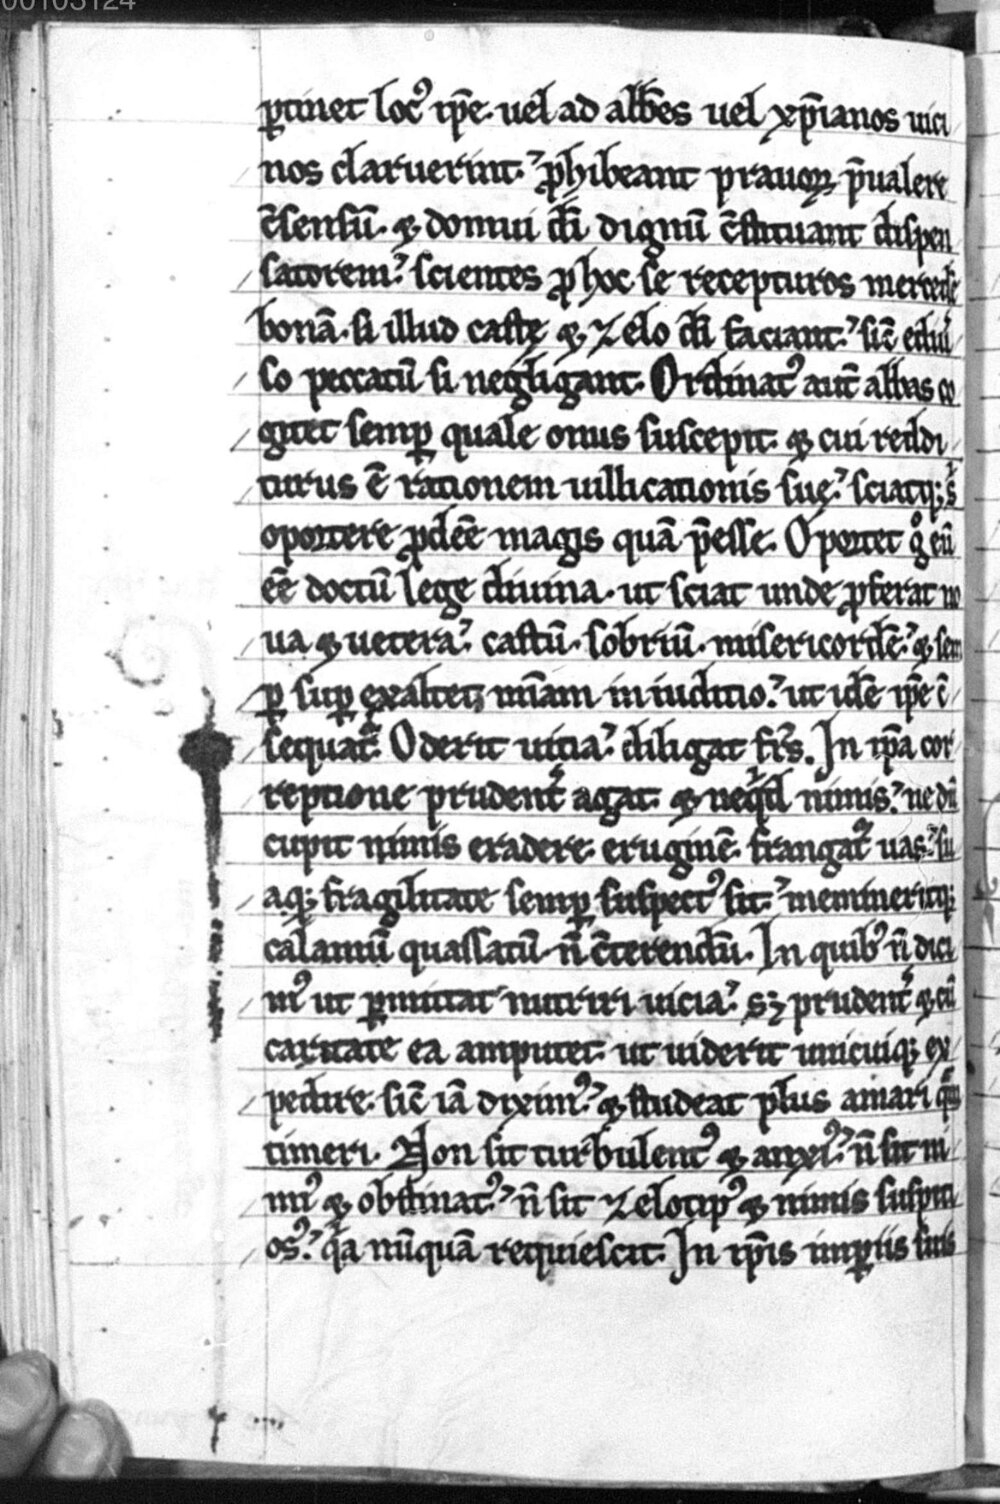 00103124
ptinet locꝰ ip̅e. uel ad abb̅es uel xp̅ianos uici
nos claruerint. ꝓhibeant prauoꝝ p̅ualere
c̅sensu̅. & domui d̅i dignu̅ c̅stituant dispen
satorem. scientes ꝓ hoc se recepturos mercede̅
bona̅. si illud caste & zelo d̅i faciant. sic̅ ediu̅
so peccatu̅ si negligant. Ordinatꝰ aut̅ abbas co
gitet semꝑ quale onus suscepit. & cui reddi
turus e̅ rationem uillicationis suę. sciatq; s
oportere ꝓdee̅ magis qua̅ p̅esse. Oportet gͦ eu̅
ee̅ doctu̅ lege diuina. ut sciat unde ꝓferat no
ua & uetera. castu̅. sobriu̅. misericorde̅. & sem
ꝑ suꝑ exaltet mi̅am in iuditio. ut ide̅ ip̅e c̅
sequat̅. Oderit uitia. diligat fr̅s. In ip̅a cor
reptione prudent̅ agat. & neqͥd nimis. ne du̅
cupit nimis eradere erugine̅. frangat̅ uas. su
aq; fragilitate semꝑ suspectꝰ sit. memineritq;
calamu̅ quassatu̅. n̅ c̅terendu̅. In quibꝰ n̅ dici
mꝰ ut ꝑmittat nutriri uicia. sꝫ prudent̅ & cu̅
caritate ea amputet. ut uiderit unicuiq; ex
pedire. sic̅ ia̅ diximꝰ. & studeat plus amari qua̅
timeri. Non sit turbulentꝰ & anxiꝰ. n̅ sit ni
miꝰ & obstinatꝰ. n̅ sit zelotipꝰ & nimis suspiti
osꝰ. qͣa nu̅qua̅ requiescit. In ip̅is imꝑiis suis